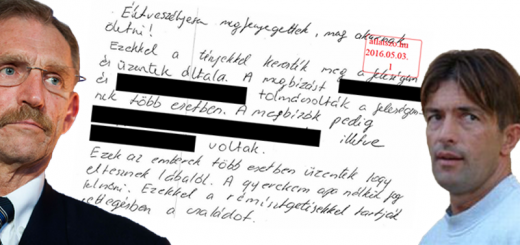 Életveszélyesen megfenyegettek, meg akarnak
öletni!
Ezekkel a tényekkel keresték meg a feleségem
és üzentek általa. A megbízást
és tolmácsolták a feleségem-
nek több esetben. A megbízók pedig
illetve
voltak.
Ezek az emberek több esetben üzentek hogy
eltesznek lábalól. A gyerekem apa nélkül fog
felnőni. Ezekkel a rémisztgetésekkel tartják
rettegésben a családot.
2016.05.03.
1